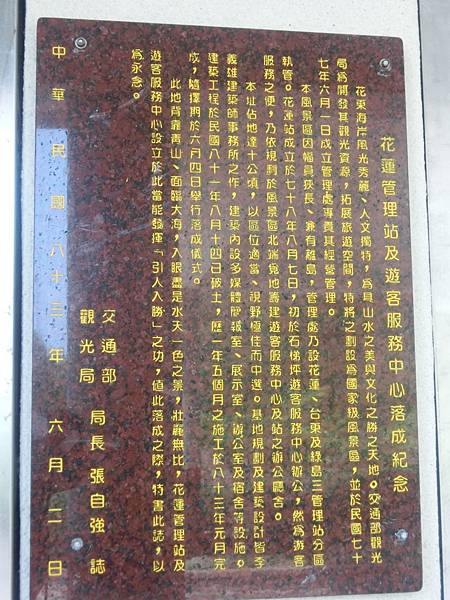 花蓮管理站及遊客服務中心落成紀念
花東海岸風光秀麗、人文獨特，為具山水之美與文化之勝之天地。交通部觀光
局為開發其觀光資源，拓展旅遊空間，特將之劃設為國家級風景區，並於民國七十
七年六月一日成立管理處專責其經營管理。
本風景區因幅員狹長、兼有離島，管理處乃設花蓮、台東及綠島三管理站分區
執管。花蓮站成立於七十八年八月七日，初於石梯坪遊客服務中心辦公，然為遊客
服務之便，乃依規劃於風景區北端覓地籌建遊客服務中心及站之辦公廳舍。
本址佔地達十公頃，以區位適當、視野極佳而中選。基地規劃及建築設計皆李
義雄建築師事務所之作，建築內設多媒體簡報室、展示室、辦公室及宿舍等設施。
建築工程於民國八十一年八月十四日破土，歷一年五個月之施工於八十三年元月完
成，隨擇期於六月四日舉行落成儀式。
此地背靠青山、面臨大海，入眼盡是水天一色之景，壯麗無比，花蓮管理站及
遊客服務中心設立於此當能發揮「引人入勝」之功，值此落成之際，特書此誌，以
為永念。
交通部
觀光局 局長 張自強 誌
中華民國八十三年六月二日